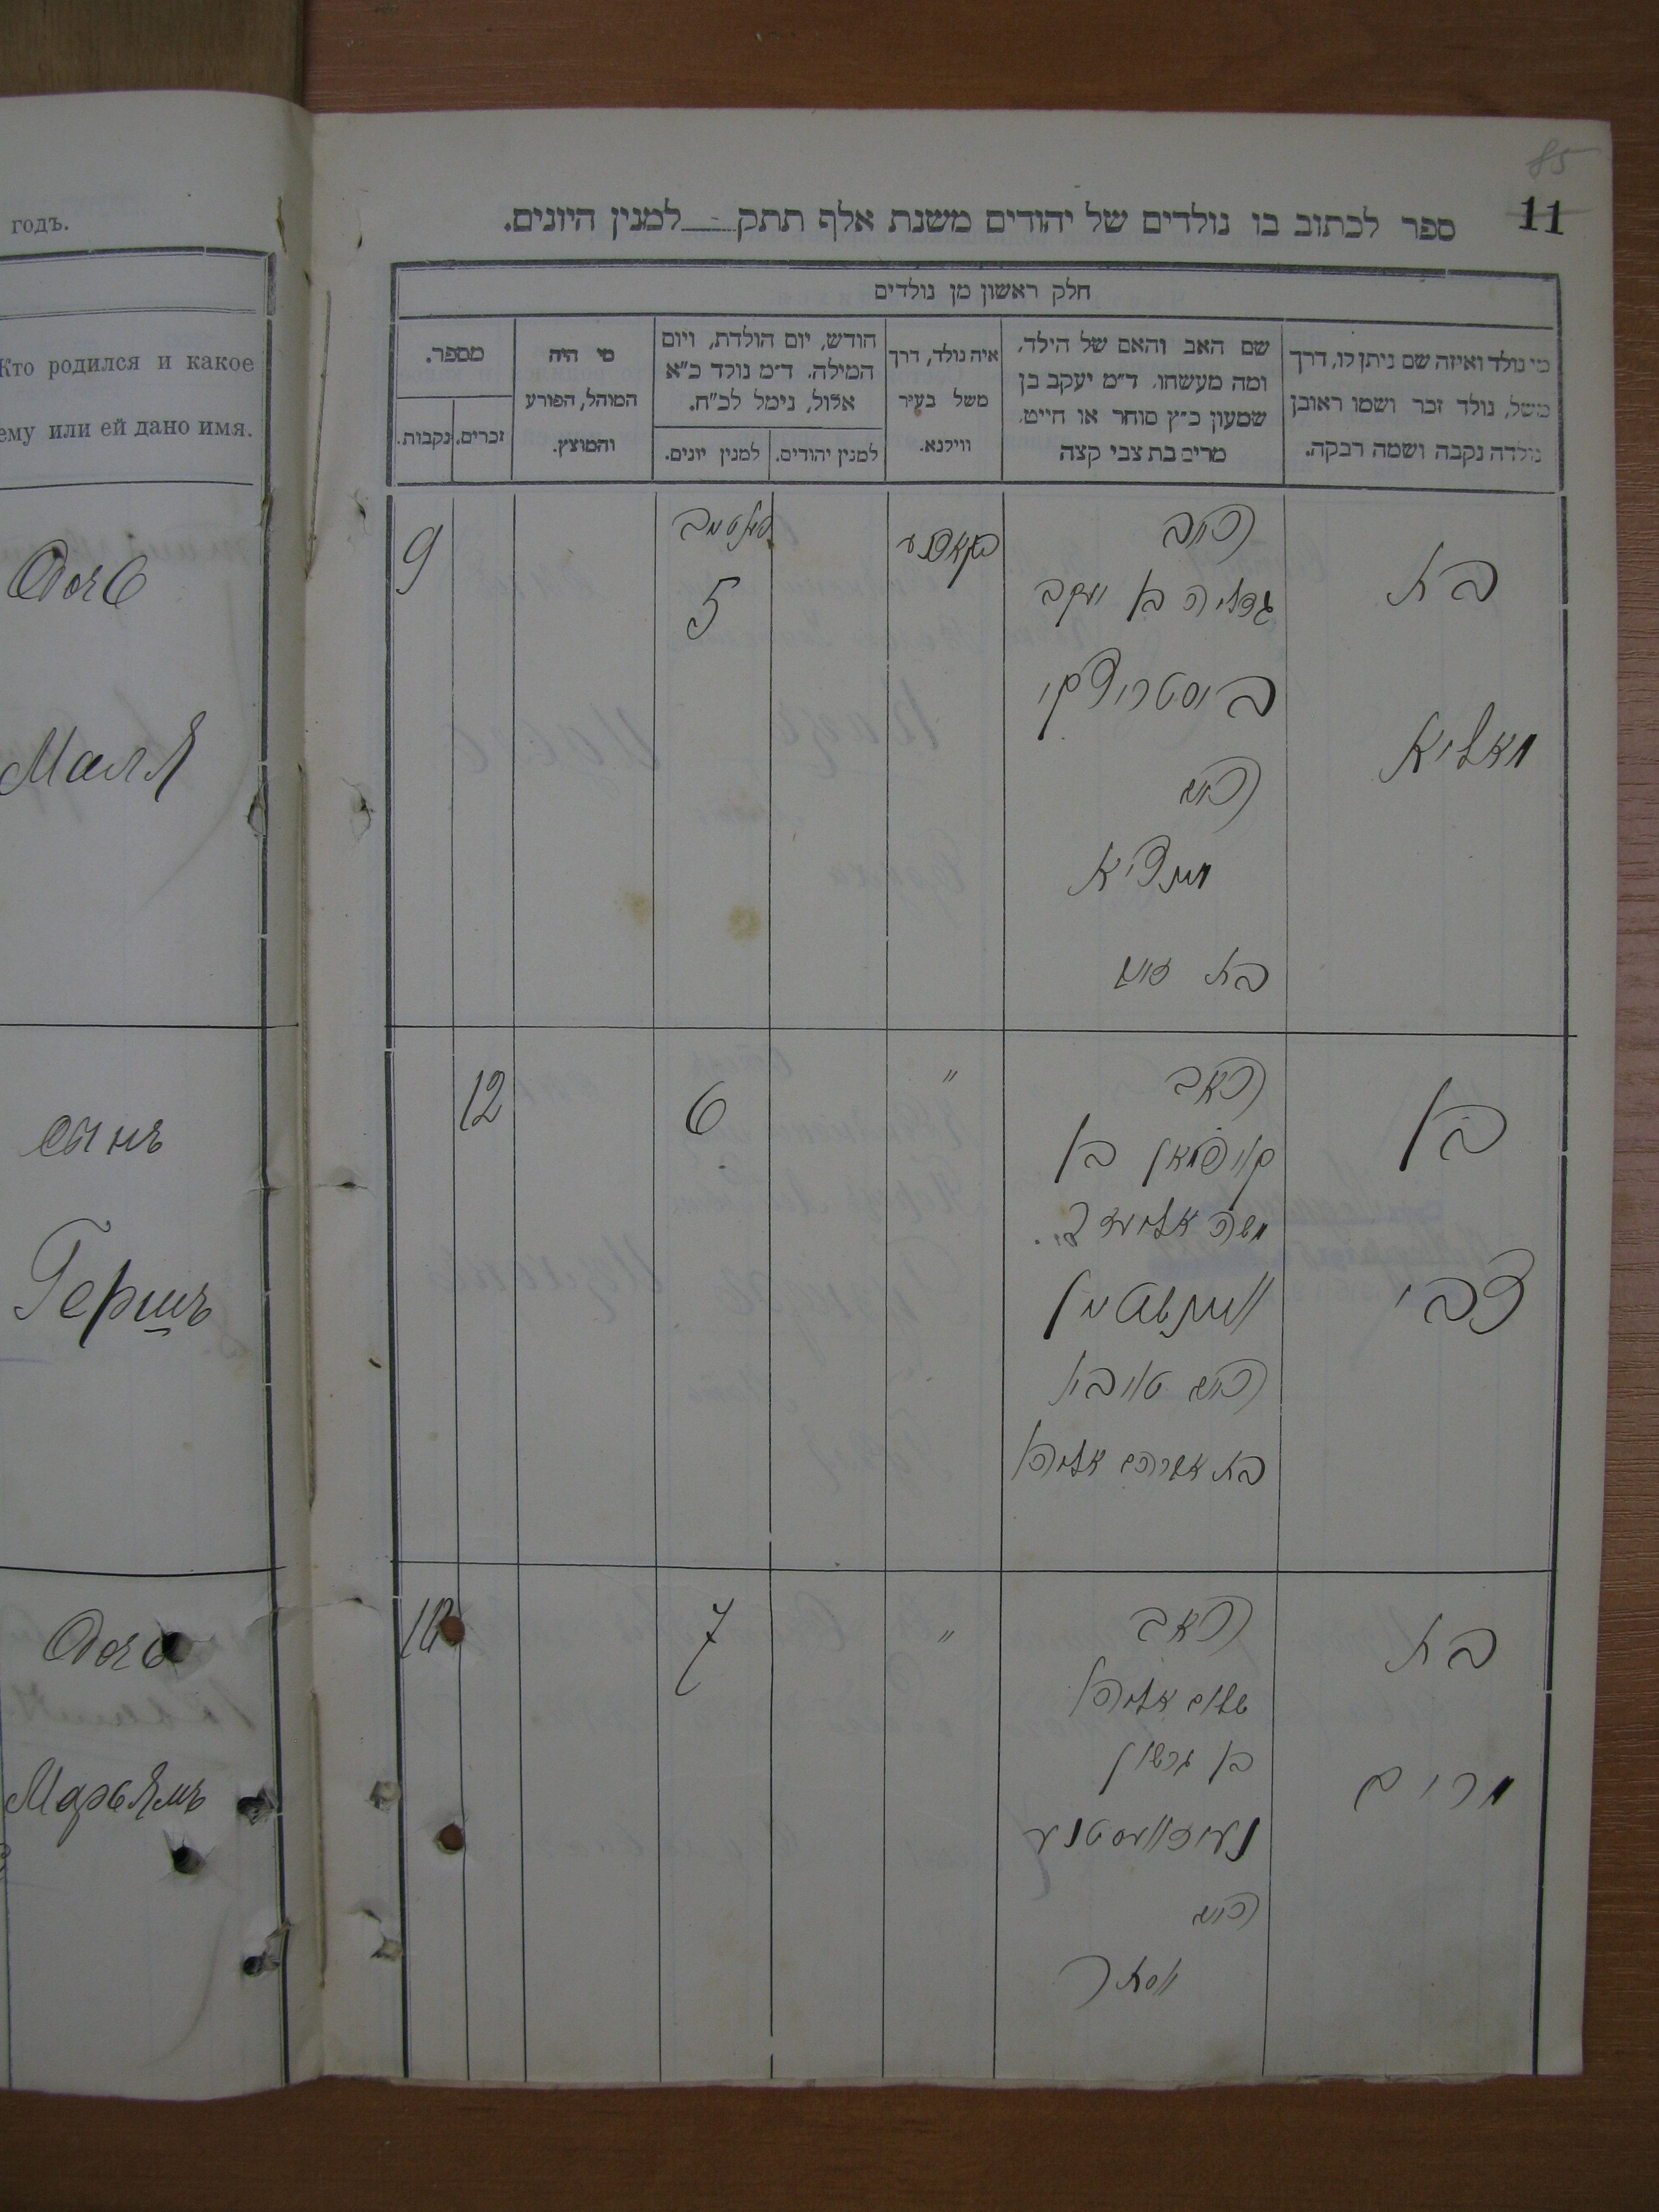 годъ.
Кто родился и какое
ему или ей дано имя.
Дочь
Маля
сынъ
Гершъ
Дочь
Марьямъ
85
11
ספר לכתוב בו נולדים של יהודים משנת אלף תתק למנין היונים.
חלק ראשון מן נולדים
מי נולד ואיזה שם ניתן לו, דרך
משל, נולד זכר ושמו ראובן
נולדה נקבה ושמה רבקה.
שם האב והאם של הילד,
ומה מעשהו. ד״מ יעקב בן
שמעון כ״ץ סוחר או חייט,
מרים בת צבי קצה
איה נולד, דרך
משל בעיר
ווילנא.
חודש, יום הולדת, ויום
המילה. ד״מ נולד כ״א
אלול, נימל לכ״ח.
למנין יהודים.
למנין יונים.
מי היה
המוהל, הפורע
והמוצץ.
מספר.
זכרים.
נקבות.
בת
מאליא
האב
גדליה בן יעקב
האם
בת
5
9
בן
צבי
האב
קויפמאן בן
משה
האם טויבא
בת אפרים אליהו
"
6
12
בת
מרים
האב
שלום אליהו
בן גרשון
האם
"
7
10